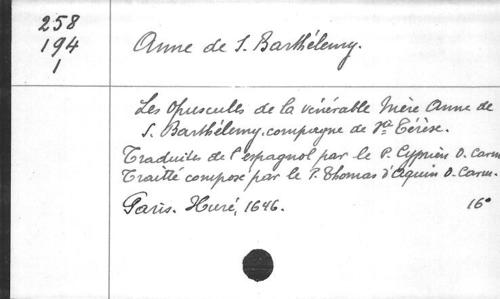 258
194
1
Anne de S. Barthélemy.
Les Opuscules de la vénérable Mère Anne de
S. Barthélemy. compagne de Ste Térèse.
Traduites de l'espagnol par le P. Cyprien O. Carm.
Traitté composé par le P. Thomas d'Aquin O. Carm.
Paris. Huré, 1646. 16°